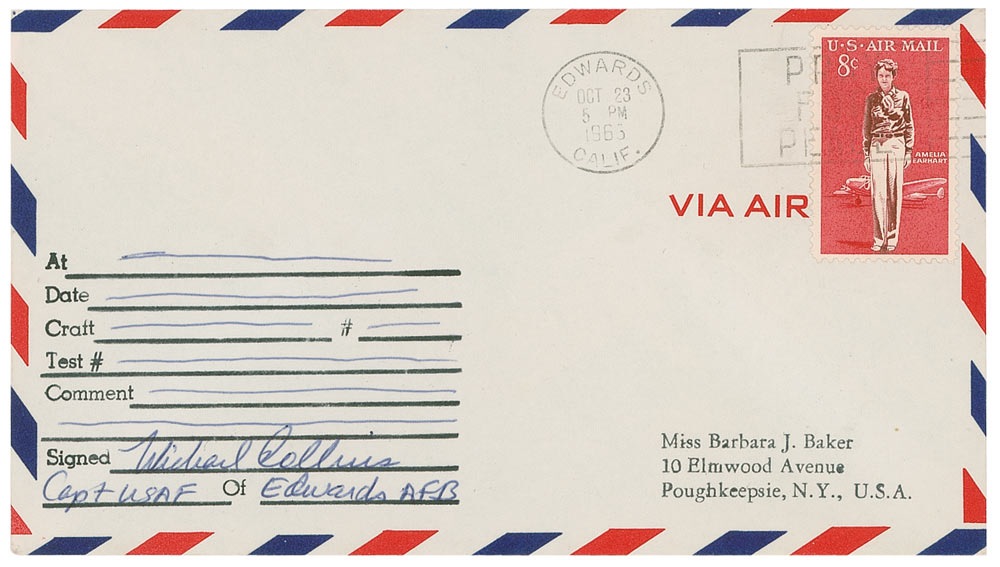 U·S·AIR MAIL
8¢
AMELIA
EARHART
EDWARDS
OCT 23
5 PM
CALIF.
VIA AIR
At
Date
Craft #
Test #
Comment
Signed Michael Collins
Capt USAF Of Edwards AFB
Miss Barbara J. Baker
10 Elmwood Avenue
Poughkeepsie, N.Y., U.S.A.